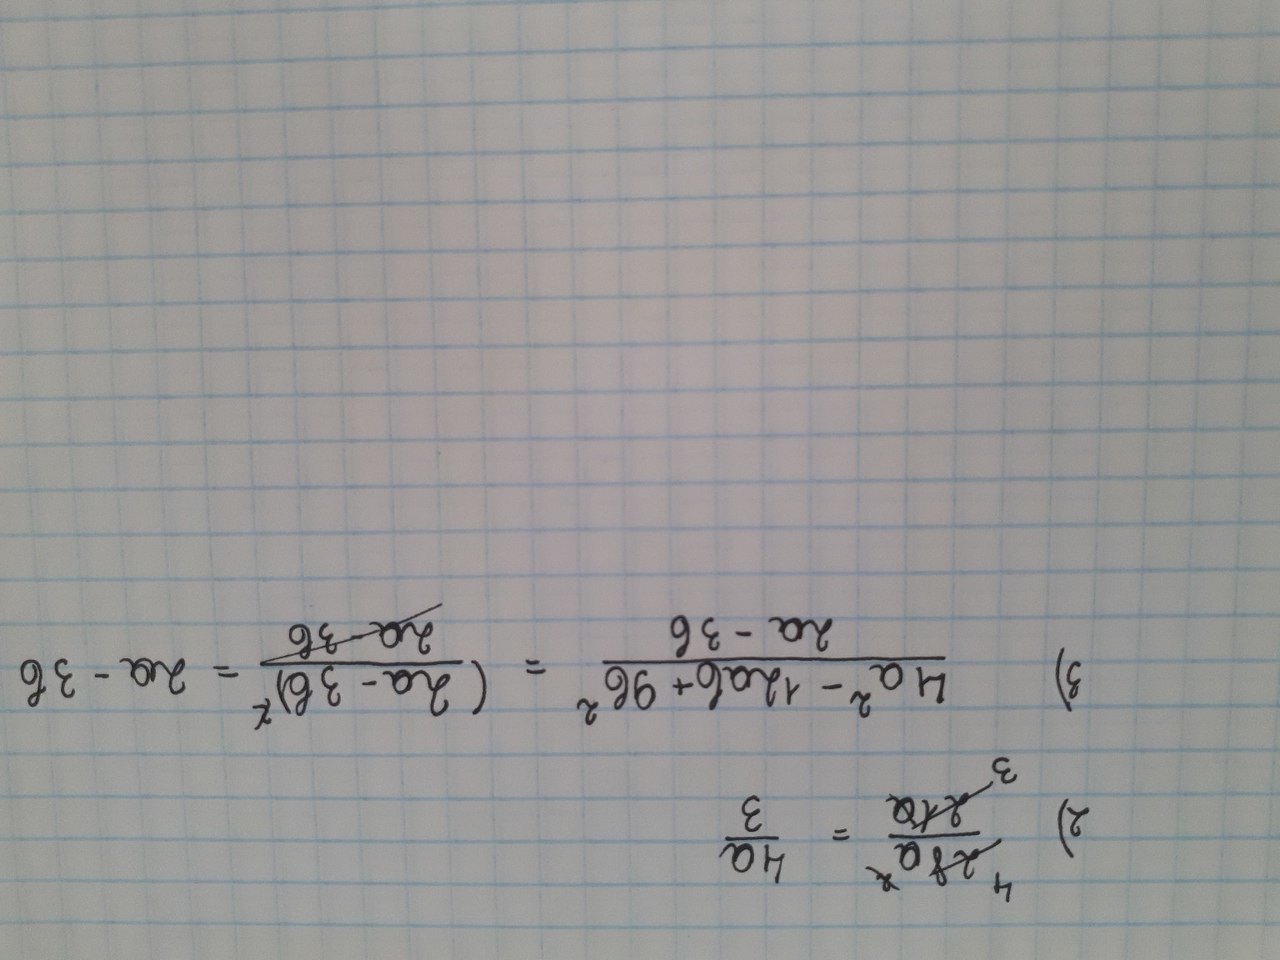 2) 28a²/21a = 4a/3
3) (4a² - 12ab + 9b²)/(2a - 3b) = (2a - 3b)²/(2a - 3b) = 2a - 3b